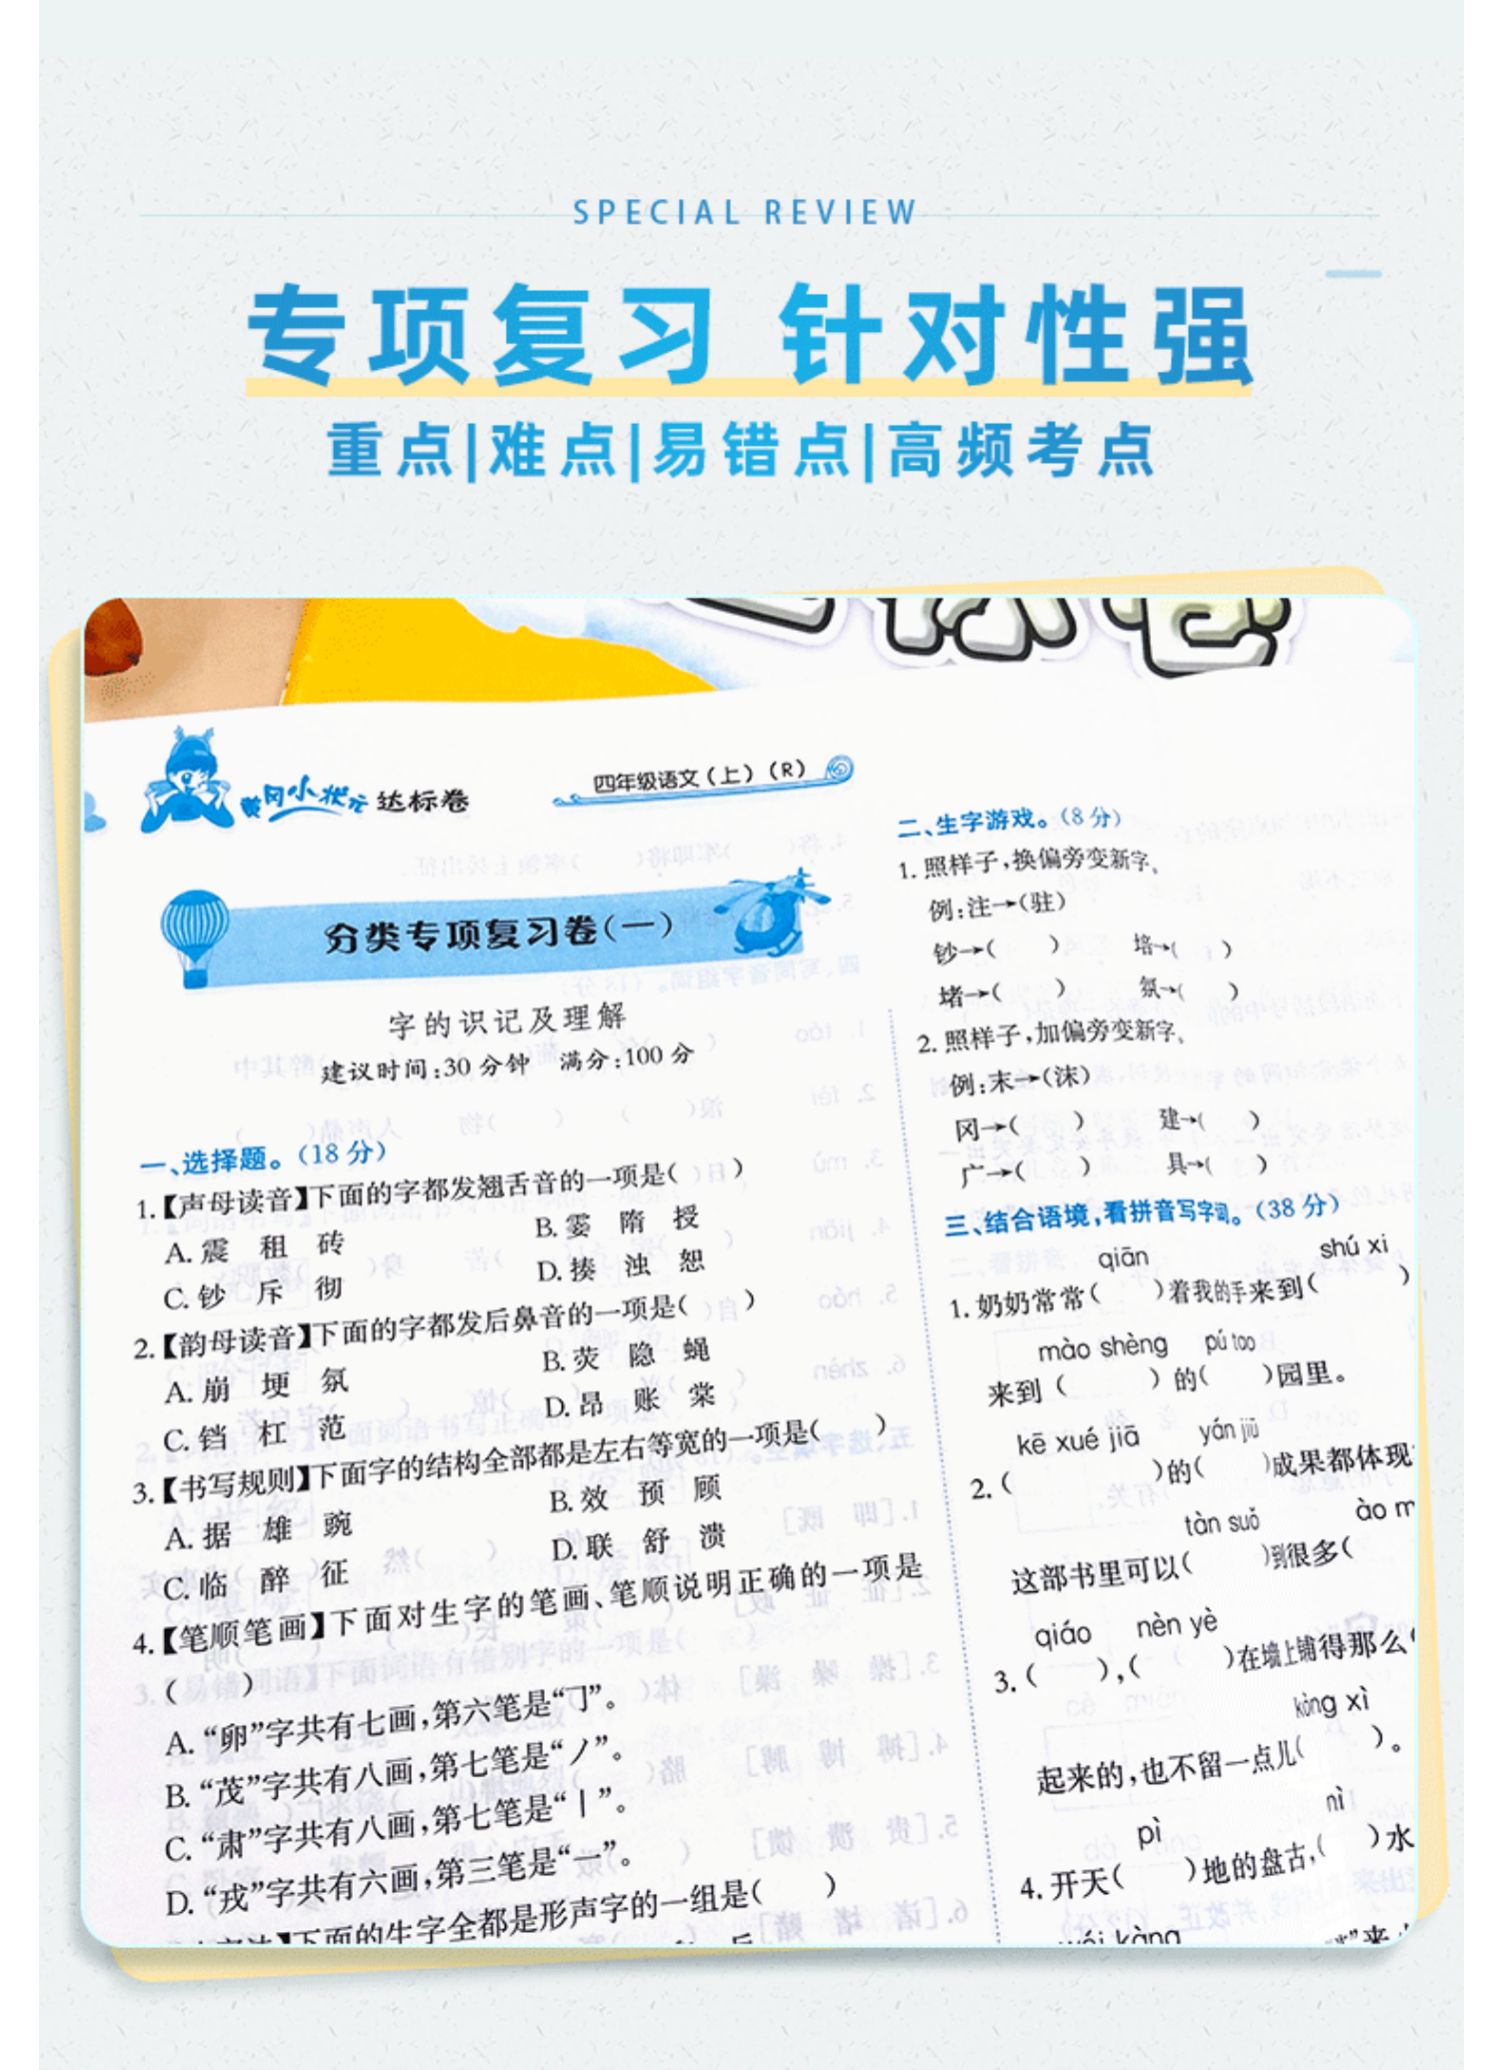 SPECIAL REVIEW
专项复习 针对性强
重点|难点|易错点|高频考点
黄冈小状元 达标卷
四年级语文(上)(R)
分类专项复习卷(一)
字的识记及理解
建议时间:30分钟 满分:100分
一、选择题。(18分)
1.【声母读音】下面的字都发翘舌音的一项是( )
A. 震 租 砖
B. 霎 隋 授
C. 钞 斥 彻
D. 揍 浊 恕
2.【韵母读音】下面的字都发后鼻音的一项是( )
A. 崩 埂 氛
B. 荧 隐 蝇
C. 铛 杠 范
D. 昂 账 棠
3.【书写规则】下面字的结构全部都是左右等宽的一项是( )
A. 据 雄 豌
B. 效 预 顾
C. 临 醉 征
D. 联 舒 溃
4.【笔顺笔画】下面对生字的笔画、笔顺说明正确的一项是
( )
A. “卵”字共有七画,第六笔是“㇆”。
B. “茂”字共有八画,第七笔是“丿”。
C. “肃”字共有八画,第七笔是“丨”。
D. “戎”字共有六画,第三笔是“一”。
】下面的生字全都是形声字的一组是( )
二、生字游戏。(8分)
1. 照样子,换偏旁变新字。
例:注→(驻)
钞→( ) 培→( )
堵→( ) 氛→( )
2. 照样子,加偏旁变新字。
例:末→(沫)
冈→( ) 建→( )
广→( ) 具→( )
三、结合语境,看拼音写字词。(38分)
qiān shú xi
1. 奶奶常常( )着我的手来到( )
mào shèng pú tao
来到( )的( )园里。
kē xué jiā yán jiū
2. ( )的( )成果都体现
tàn suǒ ào m
这部书里可以( )到很多(
qiáo nèn yè
3. ( ),( )在墙上铺得那么(
kòng xì
起来的,也不留一点儿( )。
pì nì
4. 开天( )地的盘古,( )水
kàng
”来